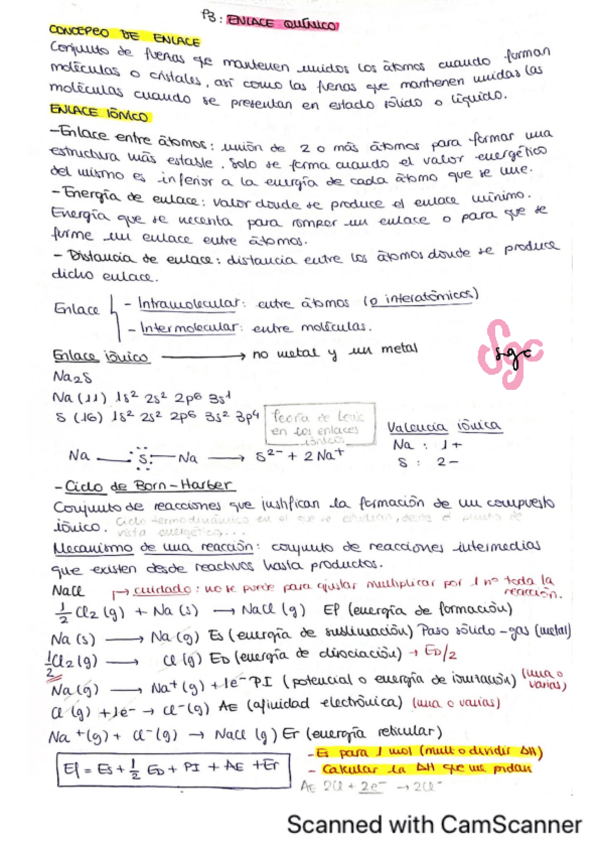 P3: ENLACE QUÍMICO
CONCEPCO DE ENLACE
Conjunto de fuerzas que mantienen unidos los átomos cuando forman
moléculas o cristales, así como las fuerzas que mantienen unidas las
moléculas cuando se presentan en estado sólido o líquido.
ENLACE IÓNICO
-Enlace entre átomos: unión de 2 o más átomos para formar una
estructura más estable. Solo se forma cuando el valor energético
del mismo es inferior a la energía de cada átomo que se une.
-Energía de enlace: valor donde se produce el enlace mínimo.
Energía que se necesita para romper un enlace o para que se
forme un enlace entre átomos.
- Distancia de enlace: distancia entre los átomos donde se produce
dicho enlace.
Enlace
- Intramolecular: entre átomos (o interatómicos)
- Intermolecular: entre moléculas.
sgc
Enlace iónico → no metal y un metal
Na2S
Na (11) 1s² 2s² 2p⁶ 3s¹
S (16) 1s² 2s² 2p⁶ 3s² 3p⁴
Teoría de Lewis
en los enlaces
iónicos
Valencia iónica
Na : 1+
S : 2-
Na — S — Na → S²⁻ + 2 Na⁺
- Ciclo de Born-Harber
Conjunto de reacciones que justifican la formación de un compuesto
iónico. Ciclo termodinámico en el que se
vista energético...
Mecanismo de una reacción: conjunto de reacciones intermedias
que existen desde reactivos hasta productos.
NaCl → cuidado: no se puede para ajustar multiplicar por 1 nº toda la
reacción.
½ Cl2 (g) + Na (s) → NaCl (g) Ef (energía de formación)
Na (s) → Na (g) Es (energía de sublimación) Paso sólido-gas (metal)
½ Cl2 (g) → Cl (g) ED (energía de disociación) → ED/2
Na (g) → Na⁺ (g) + 1e⁻ PI (potencial o energía de ionización) (una o
varias)
Cl (g) + 1e⁻ → Cl⁻ (g) AE (afinidad electrónica) (una o varias)
Na⁺ (g) + Cl⁻ (g) → NaCl (g) Er (energía reticular)
Ef = Es + ½ ED + PI + AE + Er
- Es para 1 mol (mult o dividir ΔH)
- Calcular la ΔH que me pidan
AE 2Cl + 2e⁻ → 2Cl⁻
Scanned with CamScanner